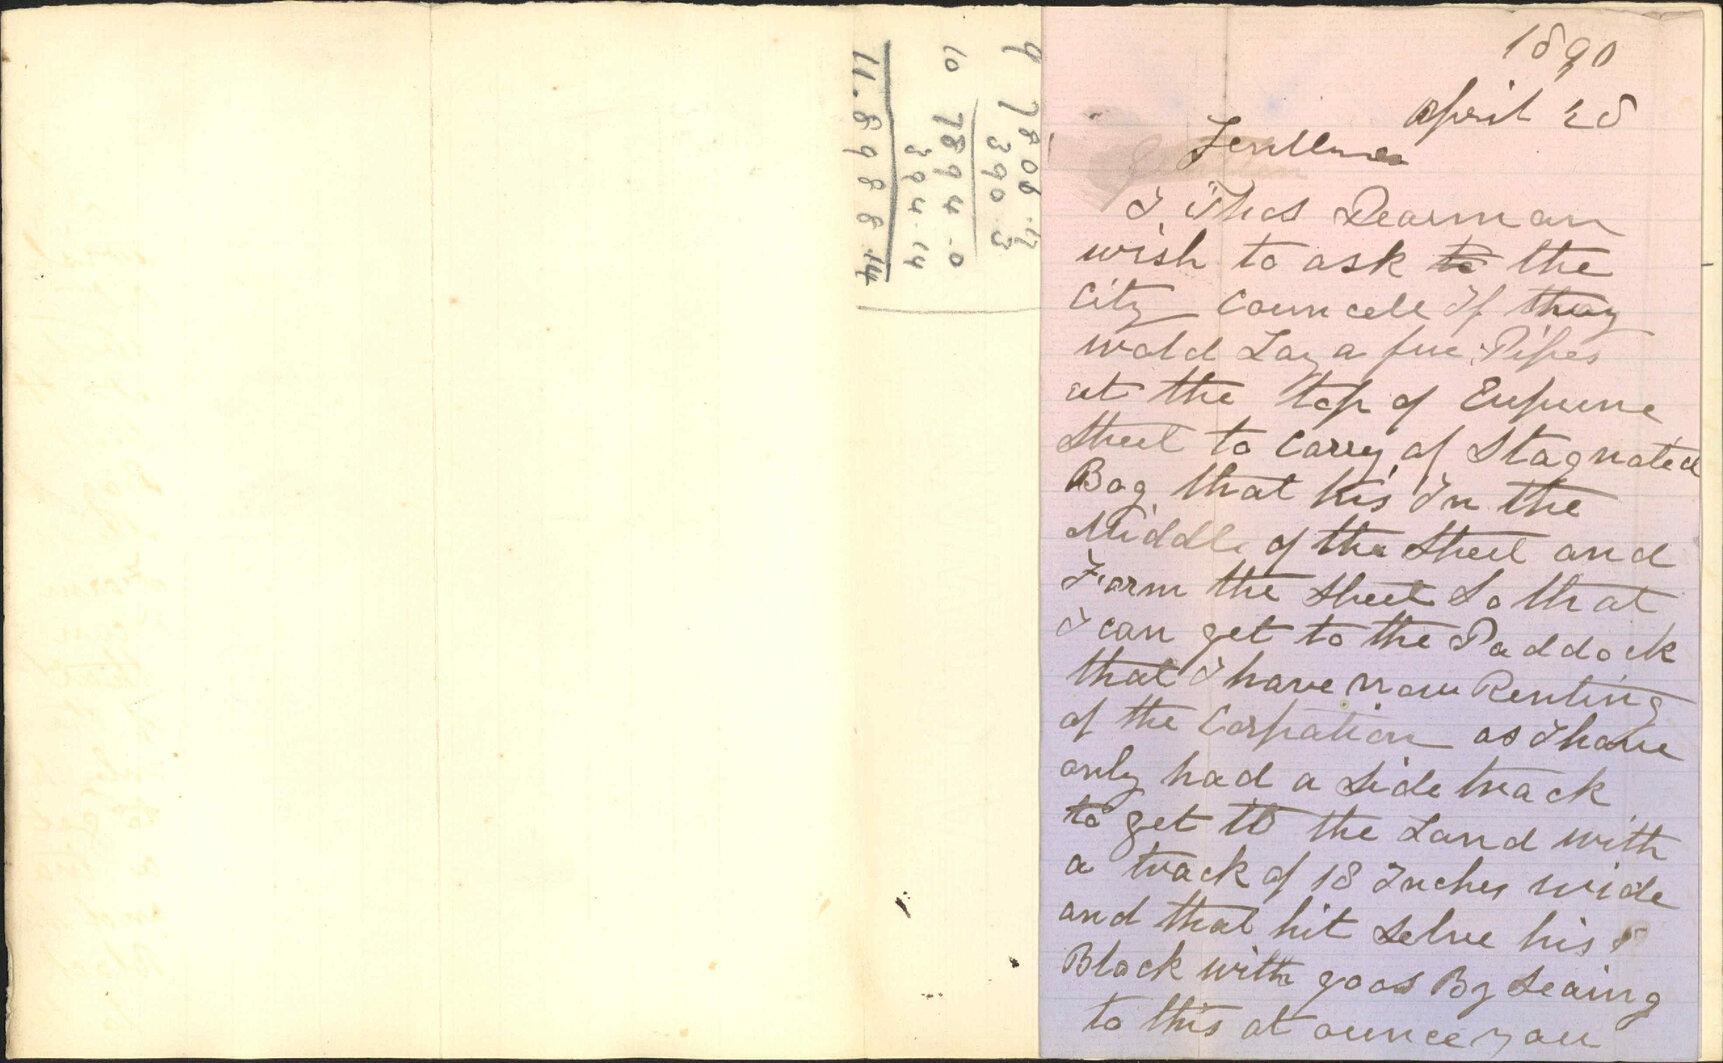 9 7806.17
390.3
10 7894.0
394.14
11.8988.14
1890
April 28
Gentlmen
I Thos Dearman
wish to ask to the
City Councell If thay
wold Lay a fue Pipes
at the top of
Street to Carry of Stagnated
Bog that his In the
Middle of the Street and
Form the Street So that
I can get to the Paddock
that I have now Renting
of the Corpration as I have
only had a Side track
to get to the Land with
a track of 18 Inches wide
and that hit Selve his
Block with goos By Seaing
to this at ounce you